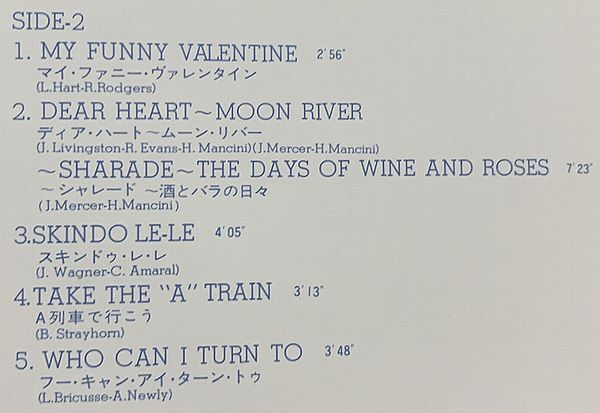 SIDE-2
1. MY FUNNY VALENTINE 2'56"
マイ・ファニー・ヴァレンタイン
(L.Hart-R.Rodgers)
2. DEAR HEART～MOON RIVER
ディア・ハート～ムーン・リバー
(J. Livingston-R. Evans-H. Mancini)(J.Mercer-H.Mancini)
～SHARADE～THE DAYS OF WINE AND ROSES 7'23"
～シャレード ～酒とバラの日々
(J.Mercer-H.Mancini)
3.SKINDO LE-LE 4'05"
スキンドゥ・レ・レ
(J. Wagner-C. Amaral)
4.TAKE THE "A" TRAIN 3'13"
A列車で行こう
(B. Strayhorn)
5. WHO CAN I TURN TO 3'48"
フー・キャン・アイ・ターン・トゥ
(L.Bricusse-A.Newly)